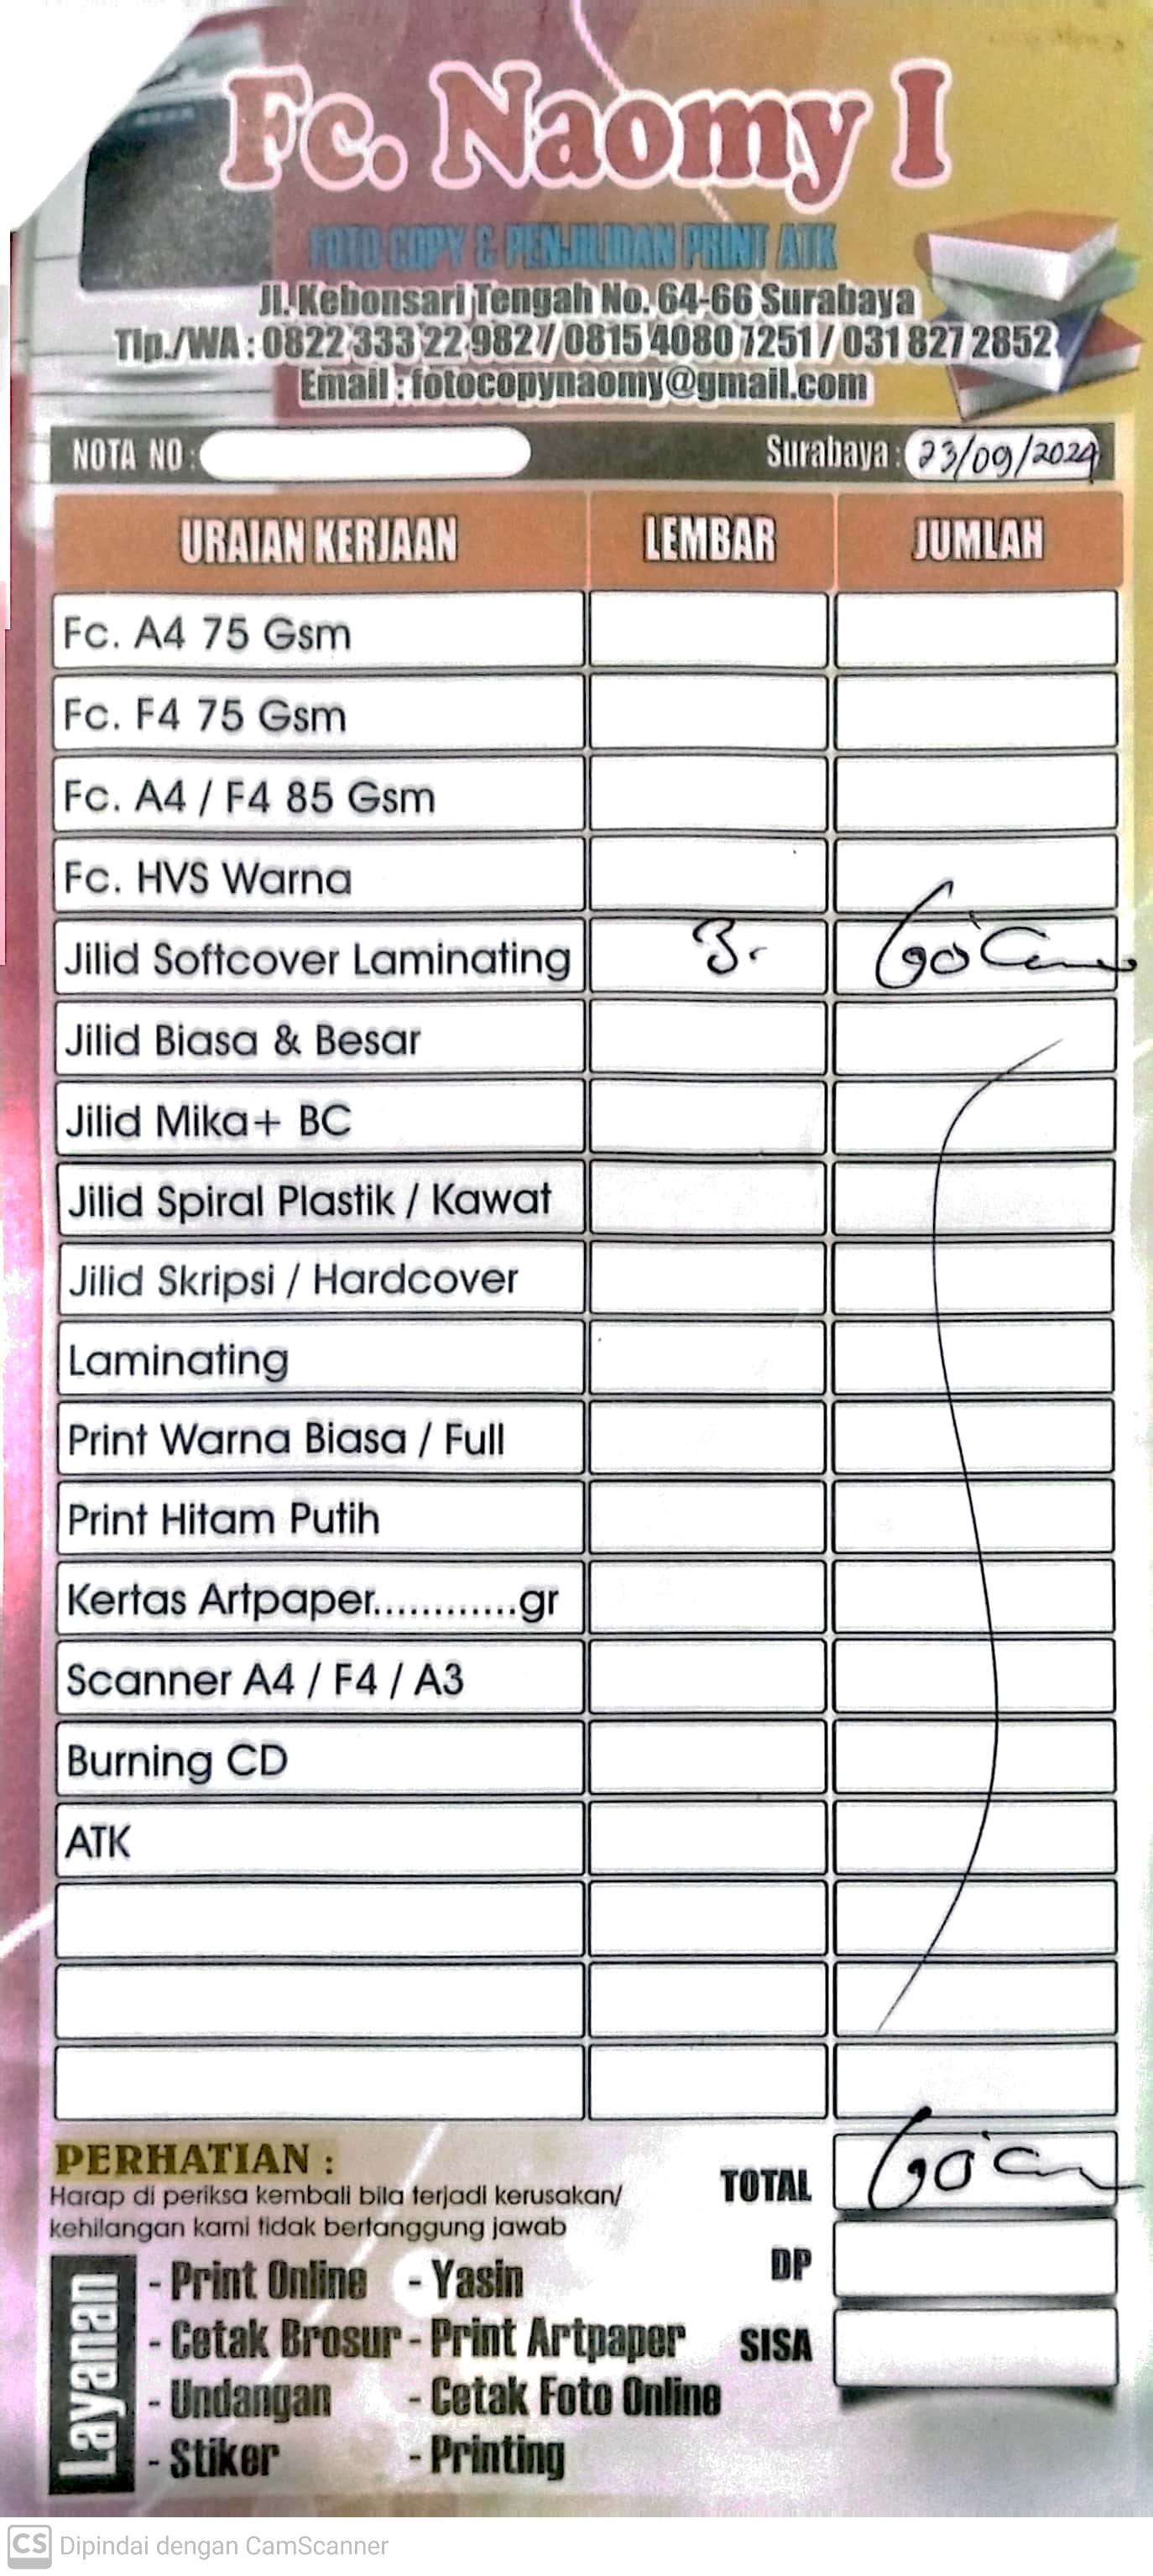 Fc. Naomy I
FOTO COPY & PENJILIDAN PRINT ATK
Jl. Kebonsari Tengah No. 64-66 Surabaya
Tlp./WA : 0822 333 22 982 / 0815 4080 7251 / 031 827 2852
Email : fotocopynaomy@gmail.com
NOTA NO : Surabaya : 23/09/2024
URAIAN KERJAAN LEMBAR JUMLAH
Fc. A4 75 Gsm
Fc. F4 75 Gsm
Fc. A4 / F4 85 Gsm
Fc. HVS Warna
Jilid Softcover Laminating 3.
Jilid Biasa & Besar
Jilid Mika+ BC
Jilid Spiral Plastik / Kawat
Jilid Skripsi / Hardcover
Laminating
Print Warna Biasa / Full
Print Hitam Putih
Kertas Artpaper............gr
Scanner A4 / F4 / A3
Burning CD
ATK
PERHATIAN :
Harap di periksa kembali bila terjadi kerusakan/
kehilangan kami tidak bertanggung jawab
TOTAL
DP
SISA
Layanan
- Print Online - Yasin
- Cetak Brosur - Print Artpaper
- Undangan - Cetak Foto Online
- Stiker - Printing
CS Dipindai dengan CamScanner